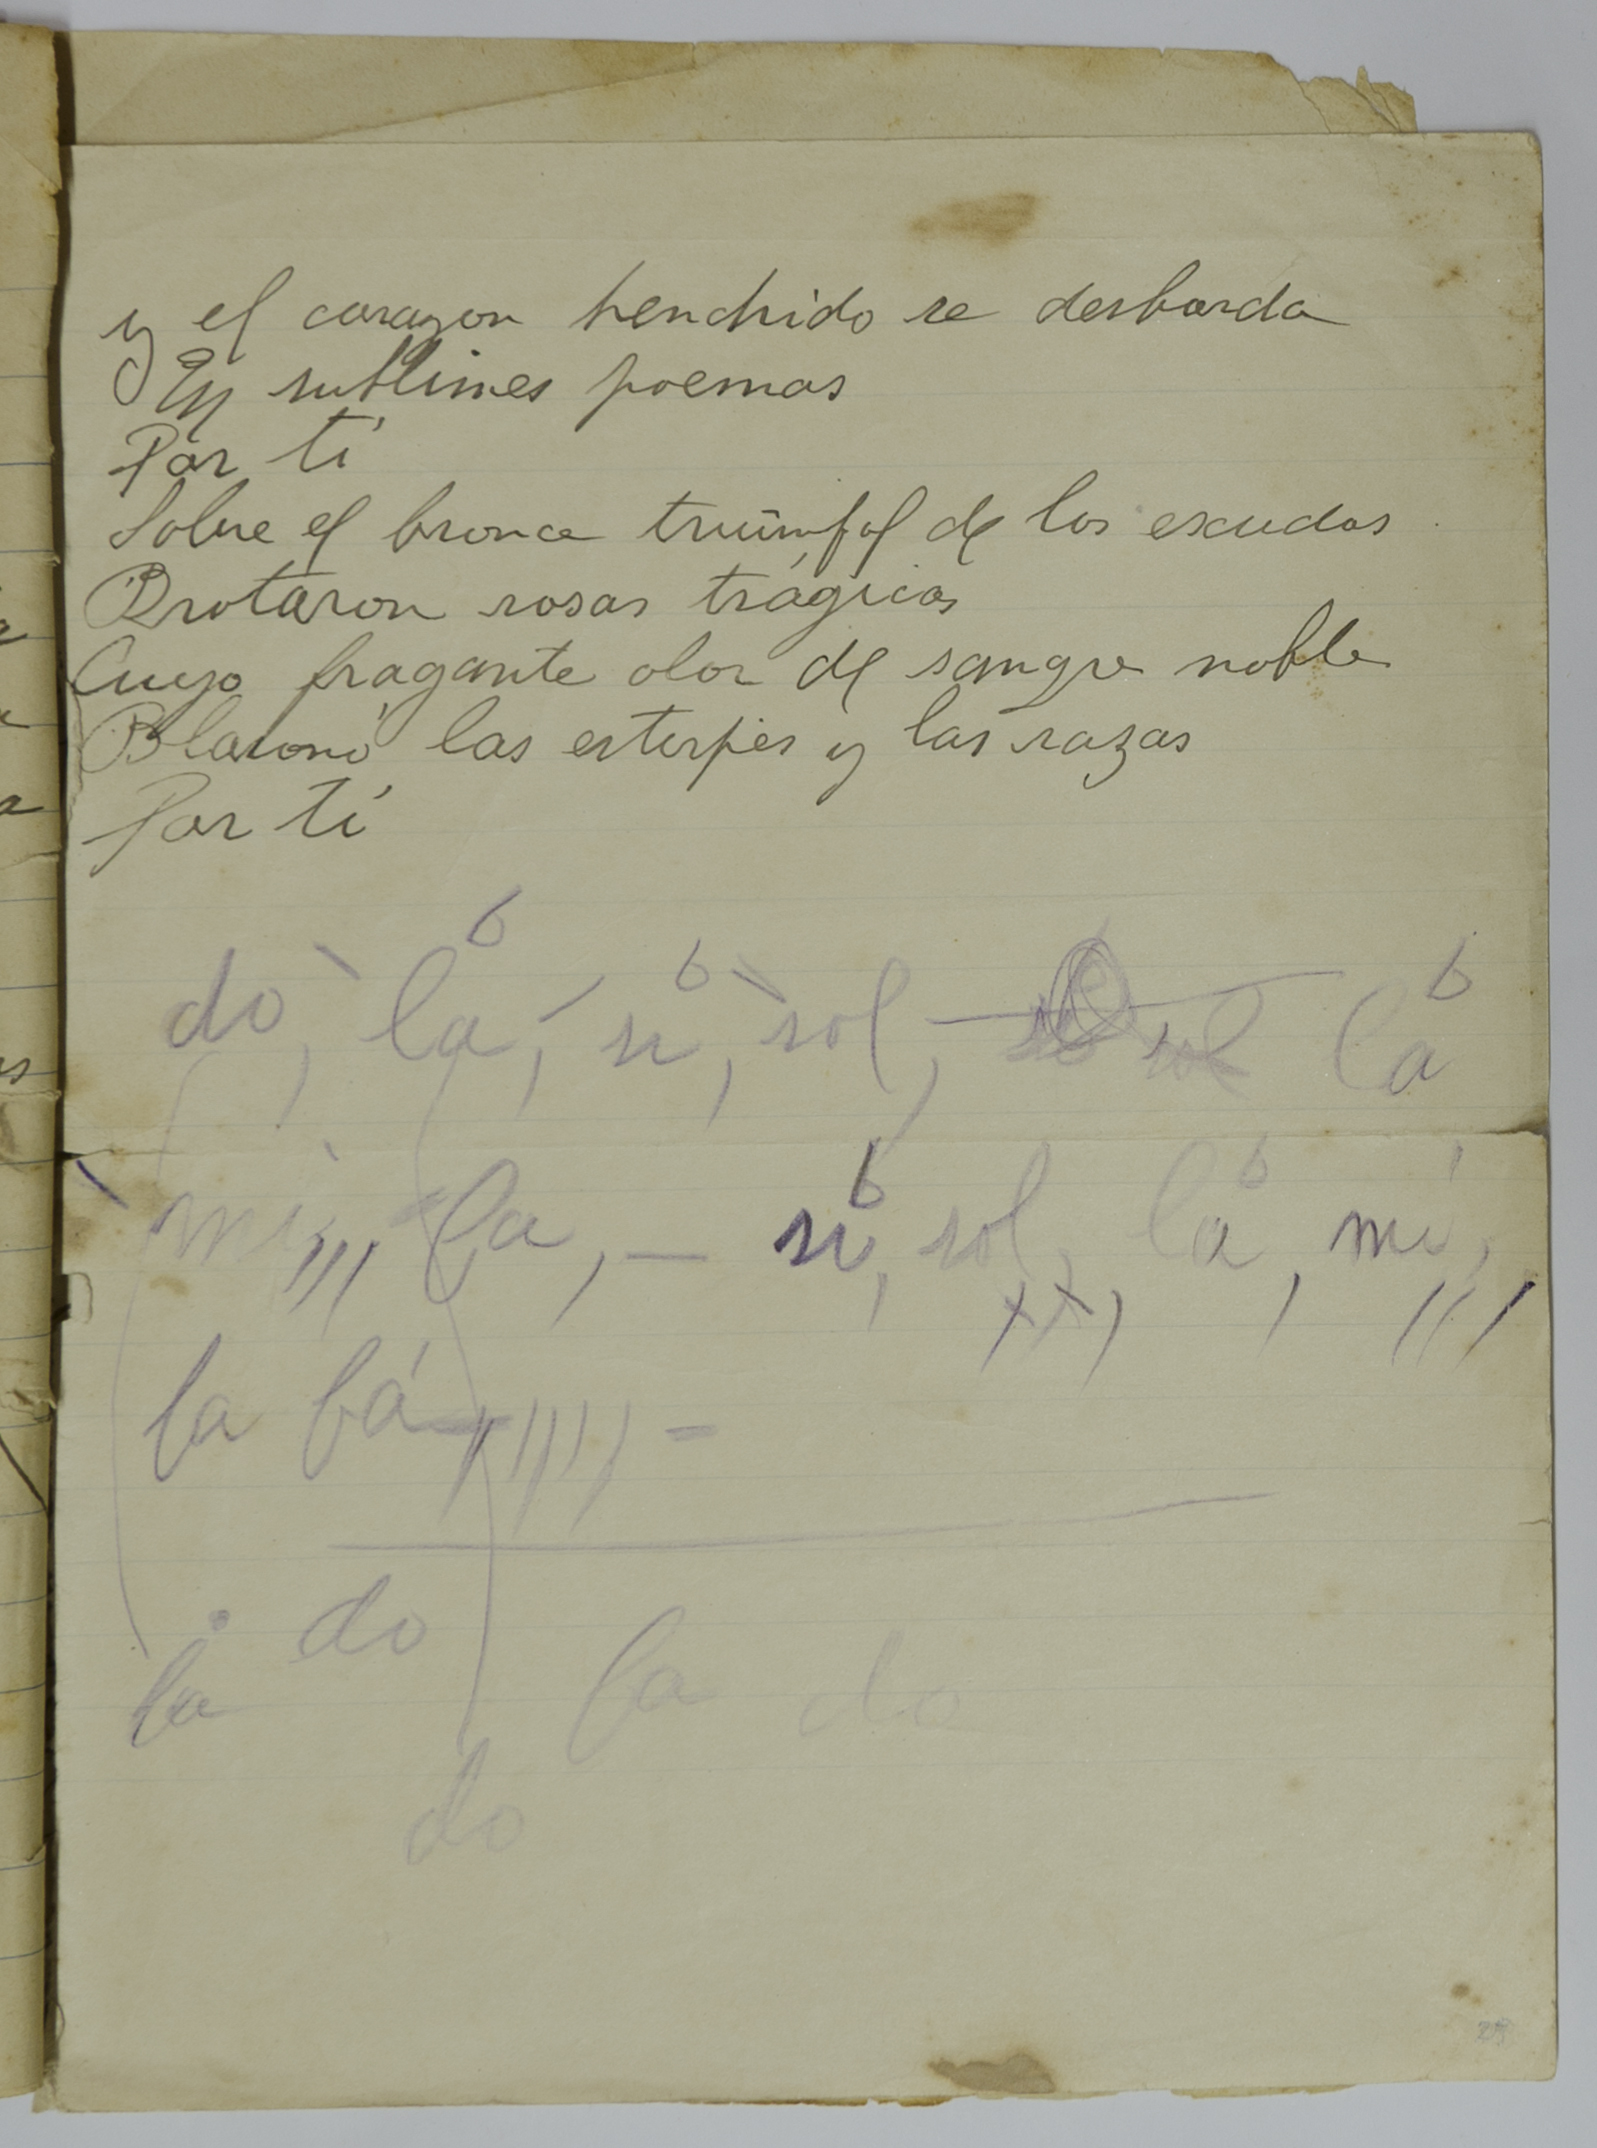 y el corazon henchido se desborda
En sublimes poemas
Por ti
Sobre el bronce triunfal de los escudos
Brotaron rosas trágicas
Cuyo fragante olor de sangre noble
Blasonó las esterpes y las razas
Por ti
do, la b, si b, sol, la b
mi,,, fa, — si b, sol, la b, mi,
fa fá ,,,,, -
fa do fa do
do